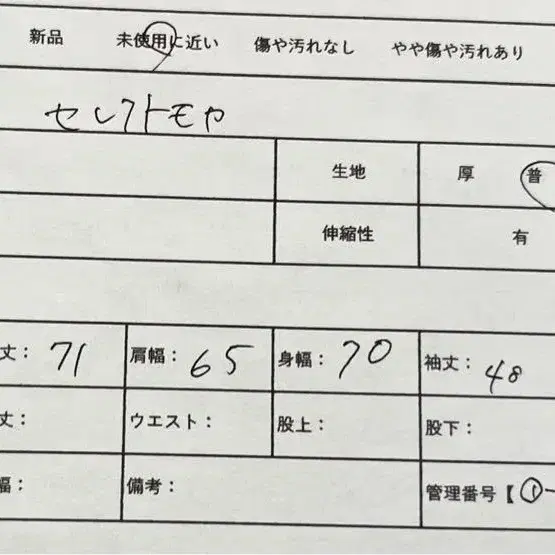 新品 未使用に近い 傷や汚れなし やや傷や汚れあり
セレクトモヤ
生地 厚 普
伸縮性 有
丈： 71 肩幅： 65 身幅： 70 袖丈： 48
丈： ウエスト： 股上： 股下：
幅： 備考： 管理番号【①-